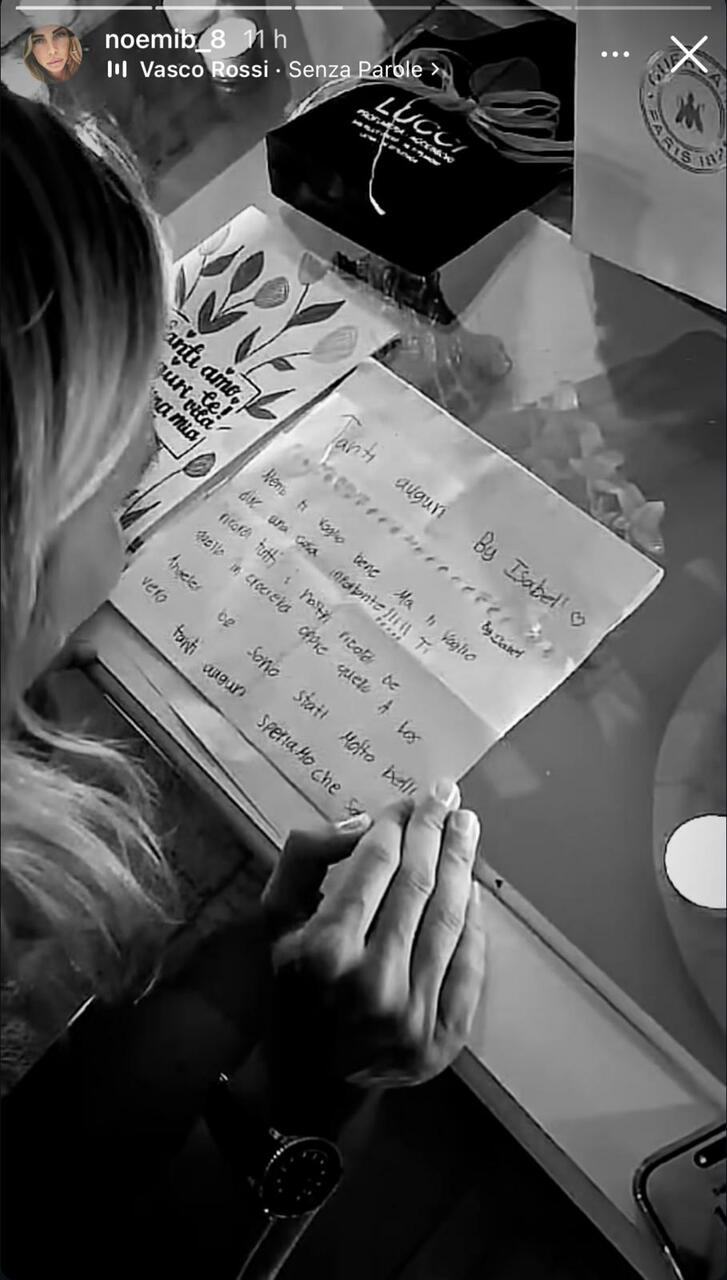 noemib_8 11 h
Vasco Rossi · Senza Parole
LUCCI
PARIS 182
anti amo,
guri te!
vita
ma mia
Tanti auguri By Isabel! ♡
Nemi ti voglio bene Ma ti voglio By Isabel
dire una cosa importante!!!!! Ti
ricordi tutti i nostri ricordi be
quello in crociera oppure quello A Los
Angeles be sono stati Molto belli
vero
tanti auguri speriaMo che sa